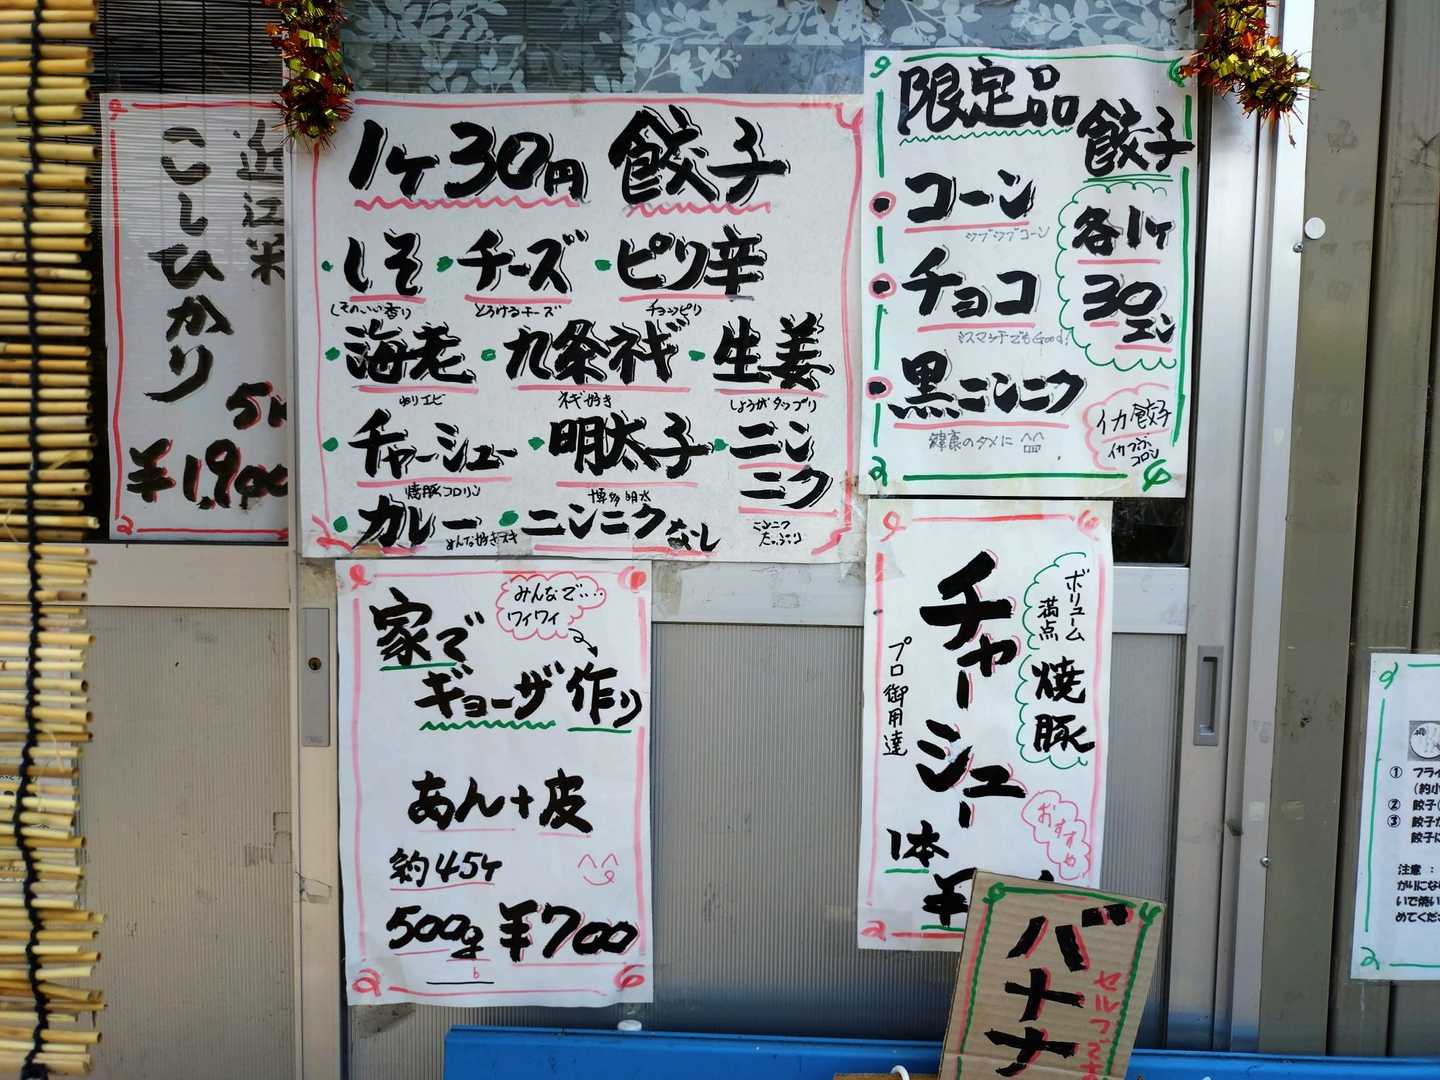 近江米
こしひかり
¥1,900
1ヶ30円 餃子
・しそ ・チーズ ・ピリ辛
しそのいい香り とろけるチーズ チョッピリ
・海老 ・九条ネギ ・生姜
ネギ好き しょうがタップリ
・チャーシュー ・明太子 ・ニンニク
焼豚コロリン 博多明太
ニンニクたっぷり
・カレー ・ニンニクなし
みんな好きスキ
限定品
餃子
コーン
ツブツブコーン
チョコ
黒ニンニク
健康のタメに
各1ヶ
30エン
イカ餃子
イカぷぷ
コロン
家で
みんなで…
ワイワイ
ギョーザ作り
あん+皮
約45ヶ
500g ¥700
ボリューム
満点
焼豚
チャーシュー
プロ御用達
おすすめ
1本
¥
バナナ
セルフです
① フライ
(約小
② 餃子(
③ 餃子が
餃子に
注意:
がりにな
いで焼い
めてくだ